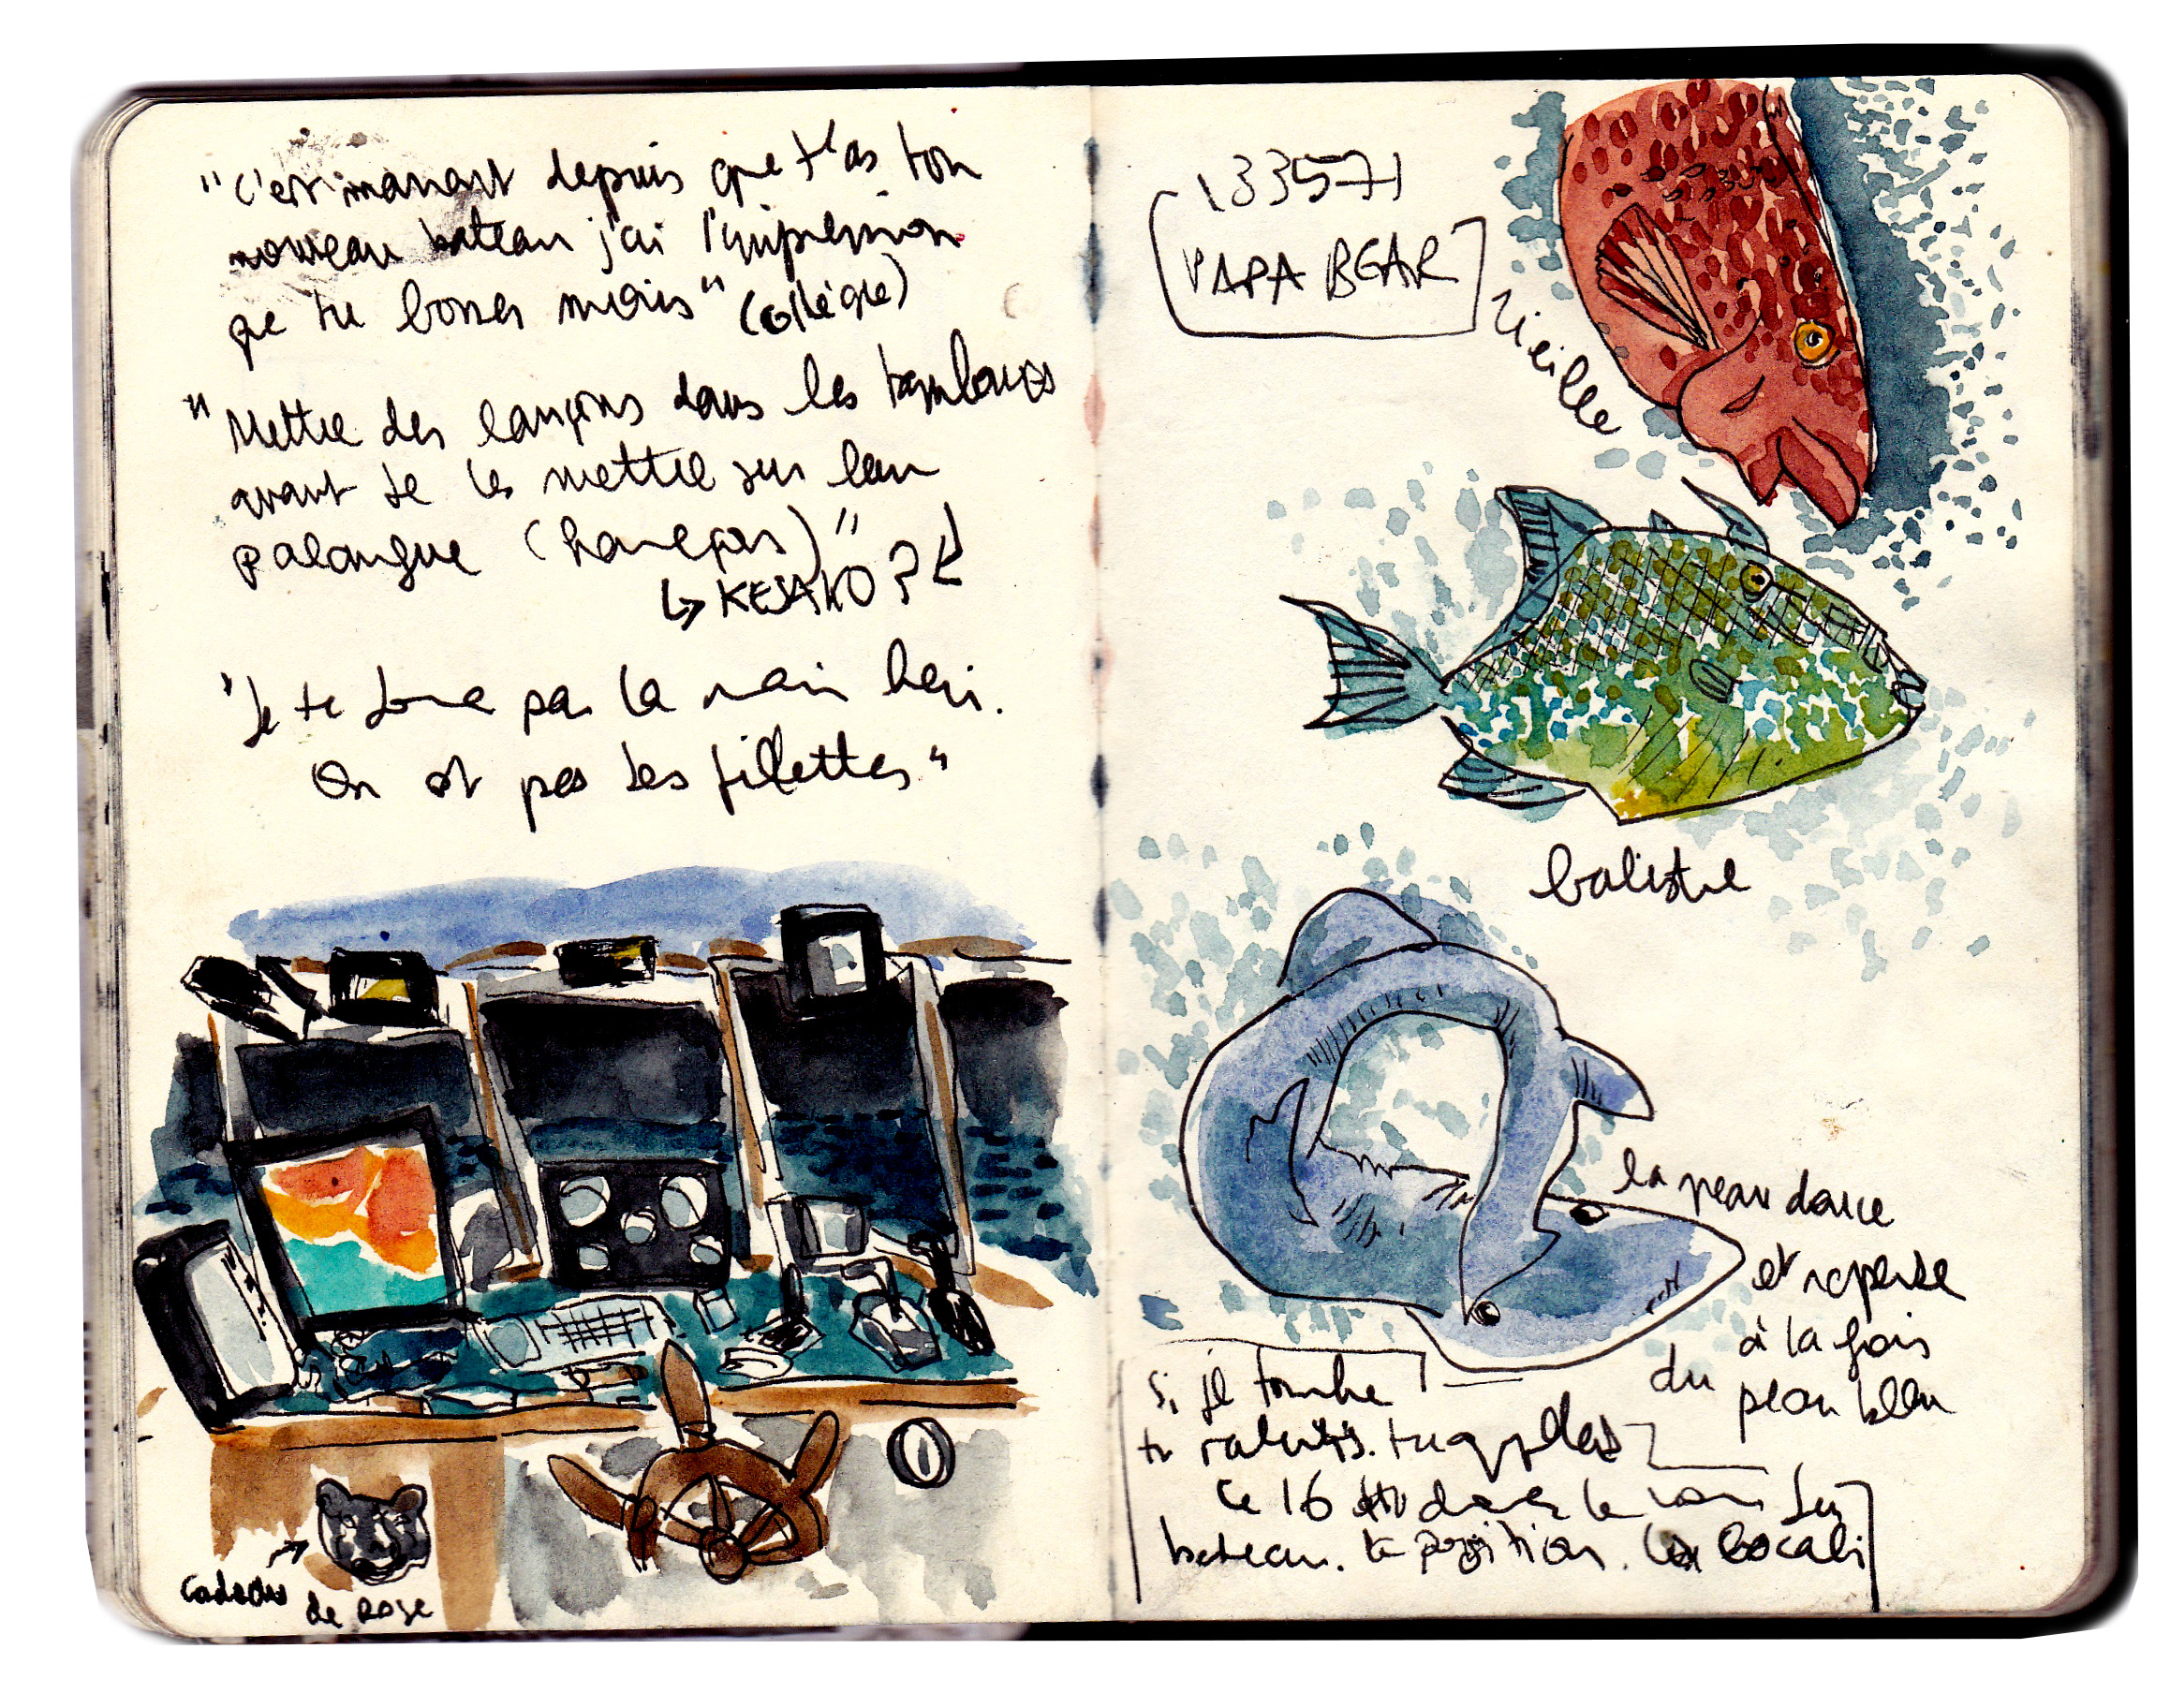 "C'est marrant depuis que t'as ton
nouveau bateau j'ai l'impression
que tu bosses moins" (collègue)
"Mettre des lançons dans les tambours
avant de les mettre sur leur
palangue (hameçons)"
↳ KESAKO ?
"Je te donne pas la main hein.
On est pas des fillettes"
cadeau
de Rose
133571
PAPA BEAR
vieille
baliste
la peau douce
et rapeuse
à la fois
du peau bleu
Si je tombe
tu ralentis. tu appelles
le 16 donnes le nom du
bateau. ta position. la